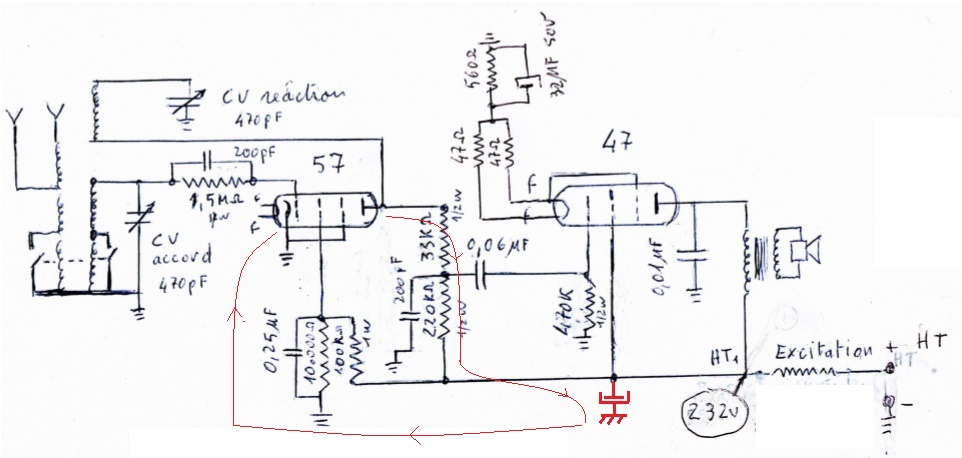 CV réaction
470pF
560Ω
32µF 50V
200pF
57
1,5MΩ
1/4w
F
CV
accord
470pF
47Ω
47Ω
47
F
F
33KΩ
1/2w
0,06µF
200pF
220KΩ
1/2w
470K
1/2w
0,01µF
0,25µF
10.000Ω
100KΩ
1W
HT1
Excitation
+ HT
HT
-
232v